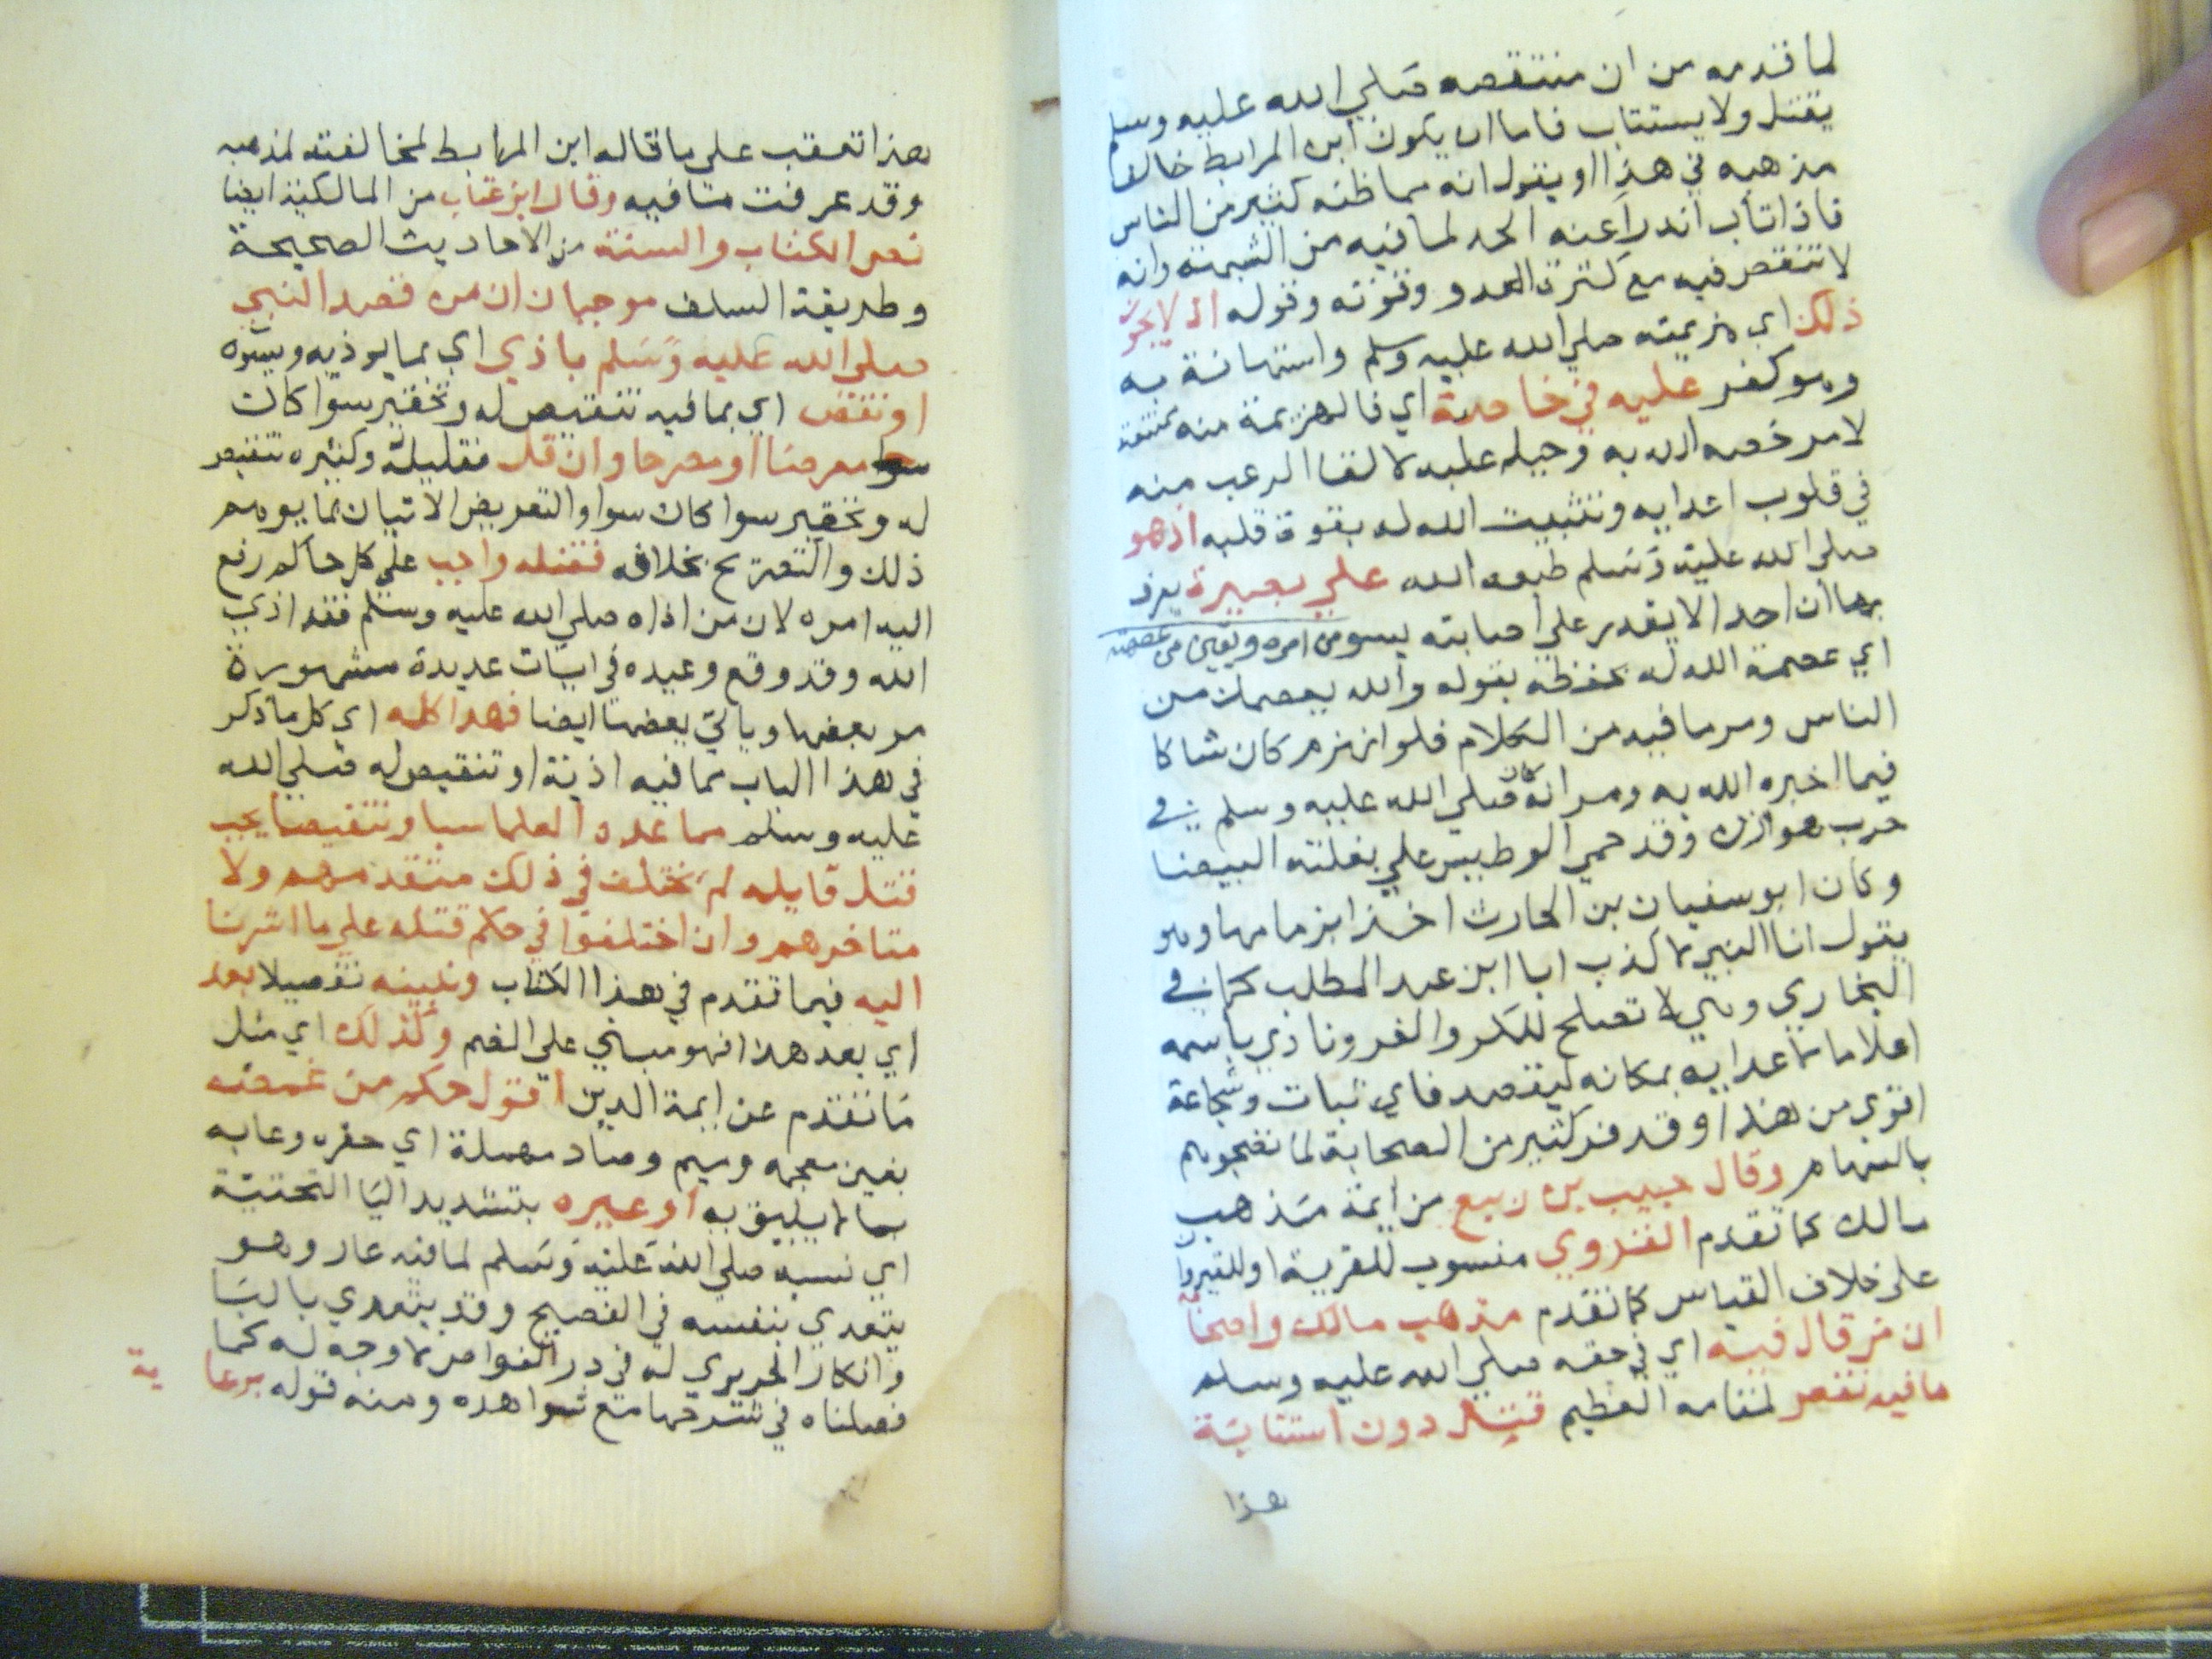 لما قدمه من ان منتقصه صلي الله عليه وسلم
يقتل ولا يستتاب فاما ان يكون ابن المرابط خالف
مذهبه في هذا او يقول انه مما ظنه كثير من الناس
فاذا تاب اندرا عنه الحد لما فيه من الشبهة وانه
لا تنقص فيه مع كثرة العدو وقوته وقوله اذ لا يجوز
ذلك اي هزيمته صلي الله عليه وسلم واستهانة به
وهو كفر عليه في خاصة اي فالهزيمة منه ممتنعة
لامر خصه الله به وجبله عليه لالقا الرعب منه
في قلوب اعدايه وتثبيت الله له بقوة قلبه اذ هو
صلي الله عليه وسلم طبعه الله علي بصيرة يعرف
بها ان احدا لا يقدر علي اصابته بسو من امره ويقين من عصمته
اي عصمة الله له بحفظه بقوله والله يعصمك من
الناس ومر ما فيه من الكلام فلو انهزم كان شاكا
فيما اخبره الله به ومر انه كان صلي الله عليه وسلم في
حرب هوازن وقد حمي الوطيس علي بغلته البيضا
وكان ابو سفيان بن الحارث اخذا بزمامها وهو
يقول انا النبي لا كذب انا ابن عبد المطلب كما في
البخاري وهي لا تصلح للكر والفر ونادي باسمه
اعلاما لاعدايه بمكانه ليقصد فاي ثبات وشجاعة
اقوي من هذا وقد فر كثير من الصحابة لما نضحوهم
بالسهام وقال حبيب بن ربيع من ايمة مذهب
مالك كما تقدم القروي منسوب للقرية او للقيروان
علي خلاف القياس كما تقدم مذهب مالك واصحابه
ان من قال فيه اي في حقه صلي الله عليه وسلم
ما فيه نقص لمقامه العظيم قتل دون استتابة
هذا
هذا تعقب علي ما قاله ابن المرابط لمخالفته لمذهبه
وقد عرفت ما فيه وقال ابن عتاب من المالكية ايضا
نص الكتاب والسنة من الاحاديث الصحيحة
وطريقة السلف موجبان ان من قصد النبي
صلي الله عليه وسلم باذي اي بما يوذيه ويسوه
او نقص اي بما فيه تنقيص له وتحقير سوا كان
معرضا او مصرحا وان قل فقليله وكثيره تنقيص
له وتحقير سوا كان سوا والتعريض الاتيان بما يوهم
ذلك والتصريح بخلافه فقتله واجب علي كل حاكم رفع
اليه امره لان من اذاه صلي الله عليه وسلم فقد اذي
الله وقد وقع وعيده في ايات عديدة مشهورة
مر بعضها وياتي بعضها ايضا فهذا كله اي كل ما ذكر
في هذا الباب مما فيه اذية او تنقيص له صلي الله
عليه وسلم مما عده العلما سبا وتنقيصا يجب
قتل قايله لم يختلف في ذلك متقدمهم ولا
متاخرهم وان اختلفوا في حكم قتله علي ما اشرنا
اليه فيما تقدم في هذا الكتاب ونبينه تفصيلا بعد
اي بعد هذا فهو مبني علي الضم وكذلك اي مثل
ما تقدم عن ايمة الدين اقول حكم من غمصه
بغين معجمه وميم وصاد مهملة اي حقره وعابه
بما لا يليق به او عيره بتشديد اليا التحتية
اي نسبه صلي الله عليه وسلم لما فيه عار وهو
يتعدي بنفسه في الفصيح وقد يتعدي بالبا
وانكار الحريري له في درة الغواص لا وجه له كما
فصلناه في شرحها مع شواهده ومنه قوله برعاية